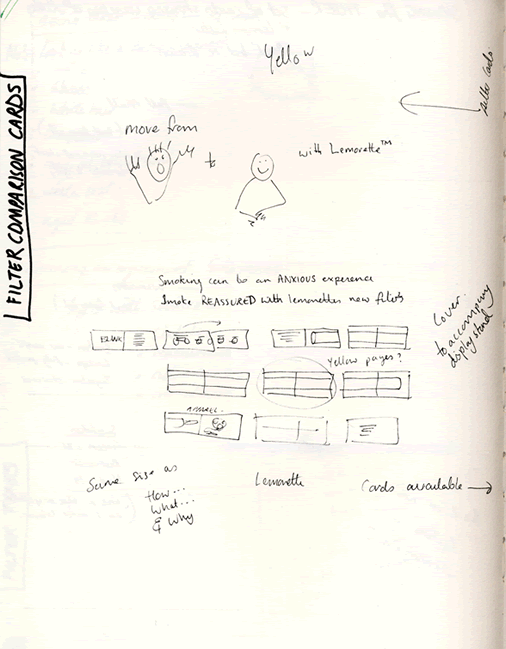 FILTER COMPARISON CARDS
Yellow
move from
to
with Lemorette™
Smoking can be an ANXIOUS experience
Smoke REASSURED with lemorettes new filters
Yellow pages?
Cover.
to accompany
display stand
Same size as
How...
What...
& Why
Lemorette
Cards available →